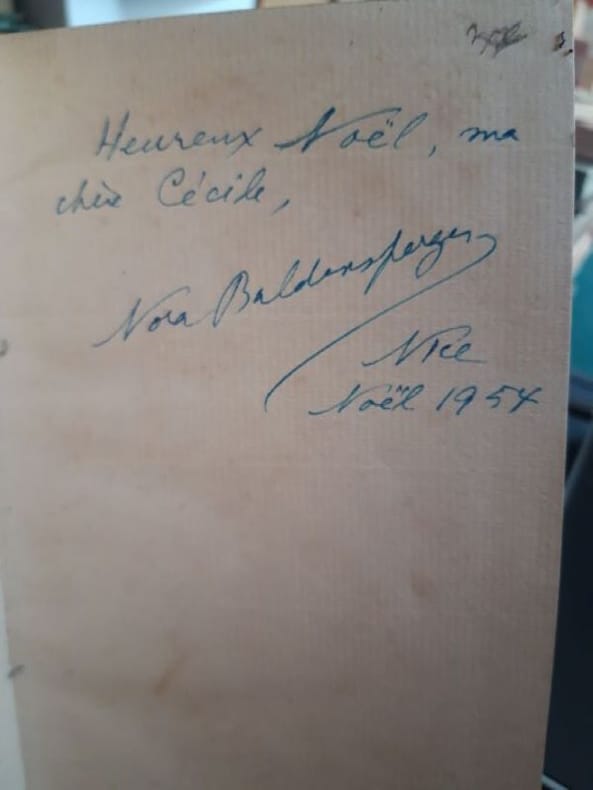 Heureux Noël, ma
chère Cécile,
Nora Baldensperger
Nice
Noël 1954